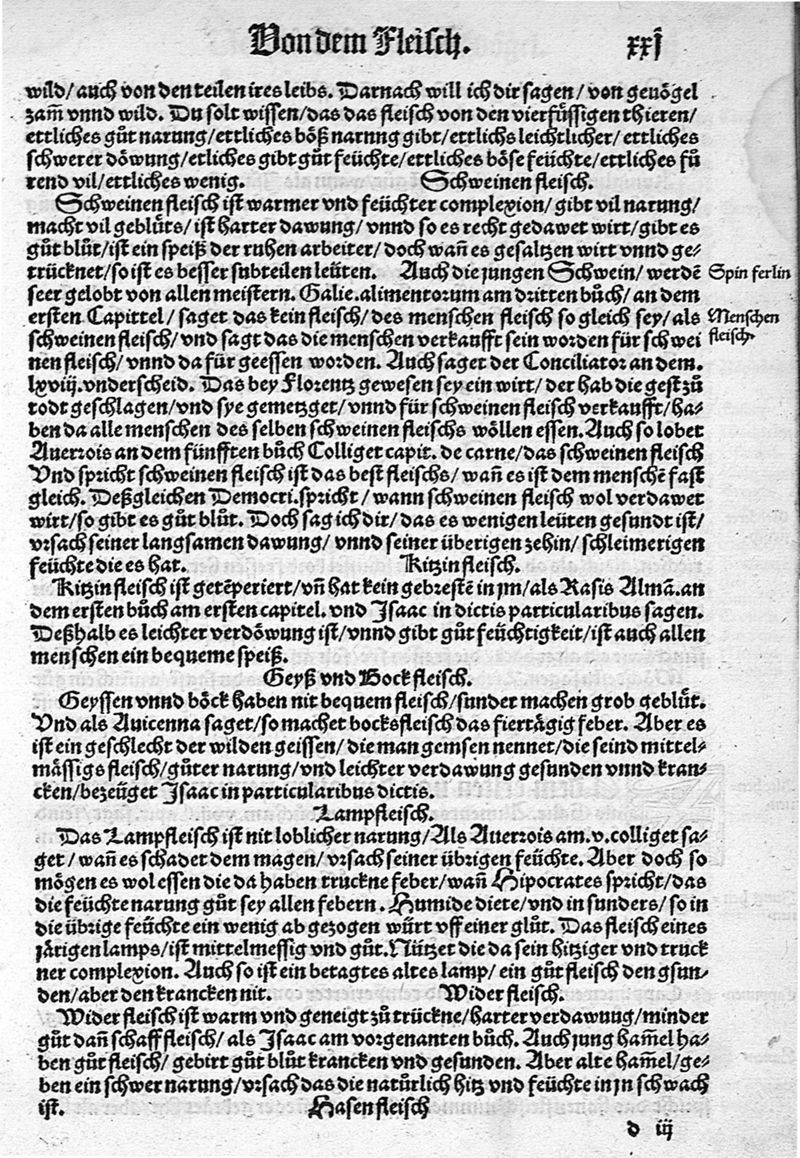 Von dem Fleisch. xxj
wild/ auch von den teilen ires leibs. Darnach will ich dir sagen/ von gevögel
zam̄ vnnd wild. Du solt wissen/das das fleisch von den vierfüssigen thieren/
ettliches gůt narung/ettliches böß narung gibt/ettlichs leichtlicher/ ettliches
schwerer döwung/etliches gibt gůt feüchte/ettliches böse feüchte/ettliches fü
rend vil/ettliches wenig. Schweinen fleisch.
Schweinen fleisch ist warmer vnd feüchter complexion/ gibt vil narung/
macht vil geblüts/ ist harter dawung/ vnnd so es recht gedawet wirt/gibt es
gůt blůt/ist ein speiß der ruhen arbeiter/ doch wañ es gesaltzen wirt vnnd ge-
trücknet/so ist es besser subteilen leüten. Auch die jungen Schwein/ werdē
Spin ferlin
seer gelobt von allen meistern. Galie.alimentorum am dritten bůch/ an dem
ersten Capittel/ saget das kein fleisch/ des menschen fleisch so gleich sey/ als
Menschen
schweinen fleisch/ vnd sagt das die menschen verkaufft sein worden für schwei
fleisch.
nen fleisch/ vnnd da für geessen worden. Auch saget der Conciliator an dem.
lxviij.vnderscheid. Das bey Florentz gewesen sey ein wirt/ der hab die gest zů
todt geschlagen/vnd sye gemetzget/vnnd für schweinen fleisch verkaufft/ha-
ben da alle menschen des selben schweinen fleischs wöllen essen. Auch so lobet
Auerrois an dem fünfften bůch Colliget capit. de carne/das schweinen fleisch
Vnd spricht schweinen fleisch ist das best fleischs/ wañ es ist dem menschē fast
gleich. Deßgleichen Democri.spricht/ wann schweinen fleisch wol verdawet
wirt/so gibt es gůt blůt. Doch sag ich dir/das es wenigen leüten gesundt ist/
vrsach seiner langsamen dawung/ vnnd seiner überigen zehin/ schleimerigen
feüchte die es hat. Kitzin fleisch.
Kitzin fleisch ist getēperiert/vñ hat kein gebrestē in jm/als Rasis Almā.an
dem ersten bůch am ersten capitel. vnd Isaac in dictis particularibus sagen.
Deßhalb es leichter verdöwung ist/vnnd gibt gůt feüchtigkeit/ist auch allen
menschen ein bequeme speiß.
Geyß vnd Bock fleisch.
Geyssen vnnd böck haben nit bequem fleisch/sunder machen grob geblůt.
Vnd als Auicenna saget/so machet bocksfleisch das fiertägig feber. Aber es
ist ein geschlecht der wilden geissen/ die man gemsen nennet/die seind mittel-
mässigs fleisch/gůter narung/vnd leichter verdawung gesunden vnnd kran-
cken/bezeüget Isaac in particularibus dictis.
Lampfleisch.
Das Lampfleisch ist nit loblicher narung/Als Auerrois am.v.colliget sa-
get/ wañ es schadet dem magen/ vrsach seiner übrigen feüchte. Aber doch so
mögen es wol essen die da haben truckne feber/wañ Hipocrates spricht/das
die feüchte narung gůt sey allen febern. Humide diete/vnd in sunders/ so in
die übrige feüchte ein wenig ab gezogen würt vff einer glůt. Das fleisch eines
järigen lamps/ist mittelmessig vnd gůt.Nützet die da sein hitziger vnd truck
ner complexion. Auch so ist ein betagtes altes lamp/ ein gůt fleisch den gsun-
den/aber den krancken nit. Wider fleisch.
Wider fleisch ist warm vnd geneigt zů trückne/harter verdawung/minder
gůt dañ schaff fleisch/ als Isaac am vorgenanten bůch. Auch jung ham̄el ha-
ben gůt fleisch/ gebirt gůt blůt krancken vnd gesunden. Aber alte ham̄el/ge-
ben ein schwer narung/vrsach das die natürlich hitz vnd feüchte in jn schwach
ist. Hasen fleisch
d iij